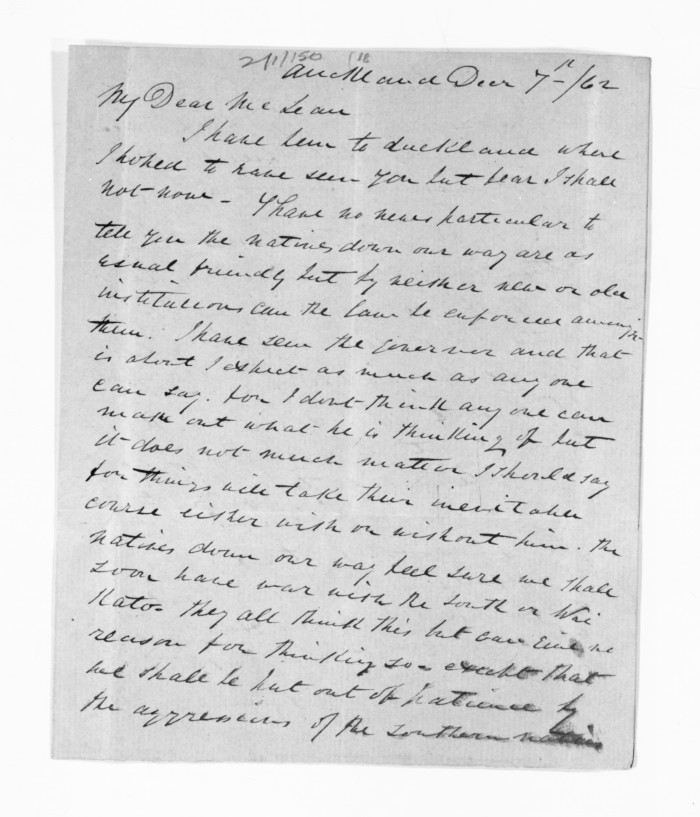 2/1/150 (18
Auckland Decr 7th/62
My Dear McLean
I have been to Auckland where
I hoped to have seen you but fear I shall
not now - I have no news particular to
tell you the natives down our way are as
usual friendly but by neither new or old
institutions can the law be enforced among
them. I have seen the governor and that
is about I expect as much as any one
can say. for I dont think any one can
make out what he is thinking of but
it does not much matter I should say
for things will take their inevitable
course either with or without him. The
natives down our way feel sure we shall
soon have war with the South or Wai
Kato - they all think this but can give no
reason for thinking so - except that
we shall be put out of patience by
the aggressions of the Southern natives